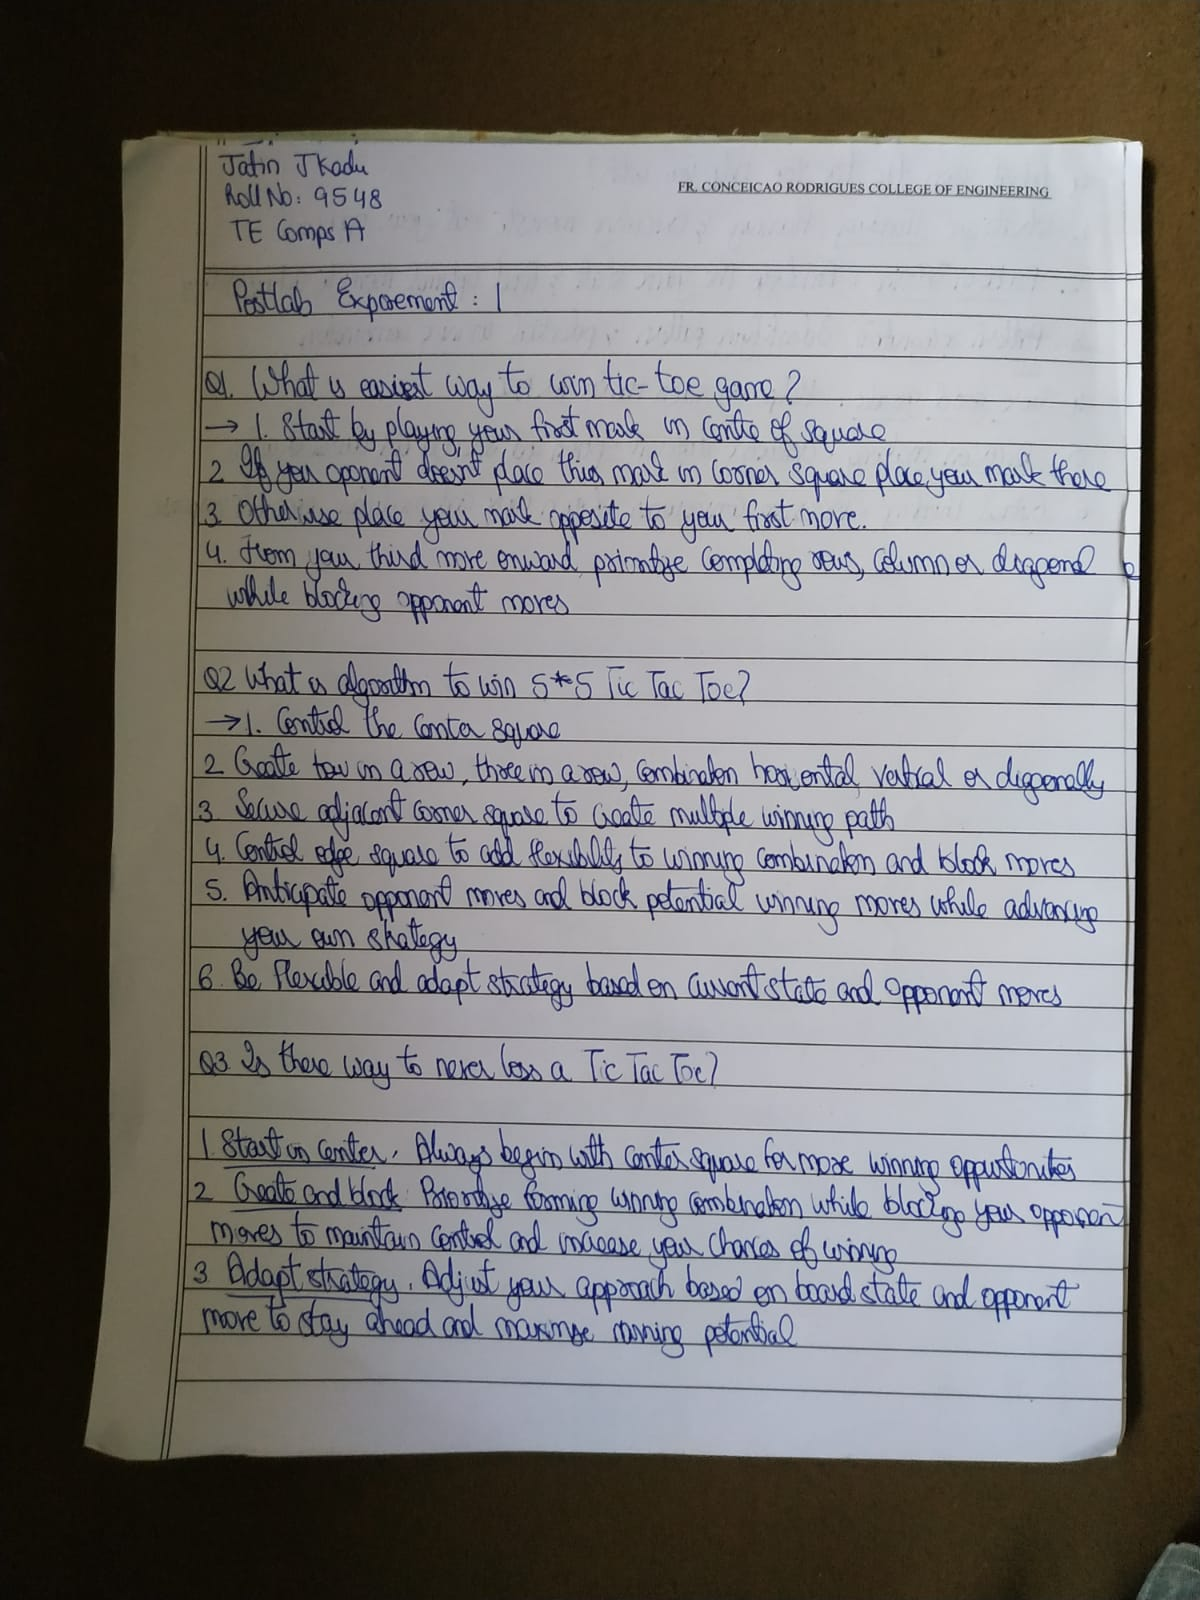 Jatin J Kadu
Roll No: 9548
TE Comps A
FR. CONCEICAO RODRIGUES COLLEGE OF ENGINEERING
Postlab Experement : 1
Q1. What is easiest way to win tic-toe game?
→ 1. Start by playing your first mark in centre of square
2 If you oponent doesn't place this mark in corner square place your mark there
3. Otherwise place your mark opposite to your first move.
4. From your third move onward prioritize completing rows, column or diagonal
while blocking opponent moves
Q2 What is algorithm to win 5*5 Tic Tac Toe?
→ 1. Control the Center square
2 Create two in a row, three in a row, combination horizontal, vertical or diagonally
3. Secure adjacent corner square to create multiple winning path
4. Control edge square to add flexibility to winning combination and block moves
5. Anticipate opponent moves and block potential winning moves while advancing
your own strategy
6. Be flexible and adapt strategy based on current state and opponent moves
Q3. Is there way to never loss a Tic Tac Toe?
1. Start in center. Always begin with center square for more winning oppurtunites
2 Create and block Prioritize forming winning combination while blocking your opponent
moves to maintain control and increase your chances of winning
3 Adapt strategy. Adjust your approach based on board state and opponent
move to stay ahead and potential